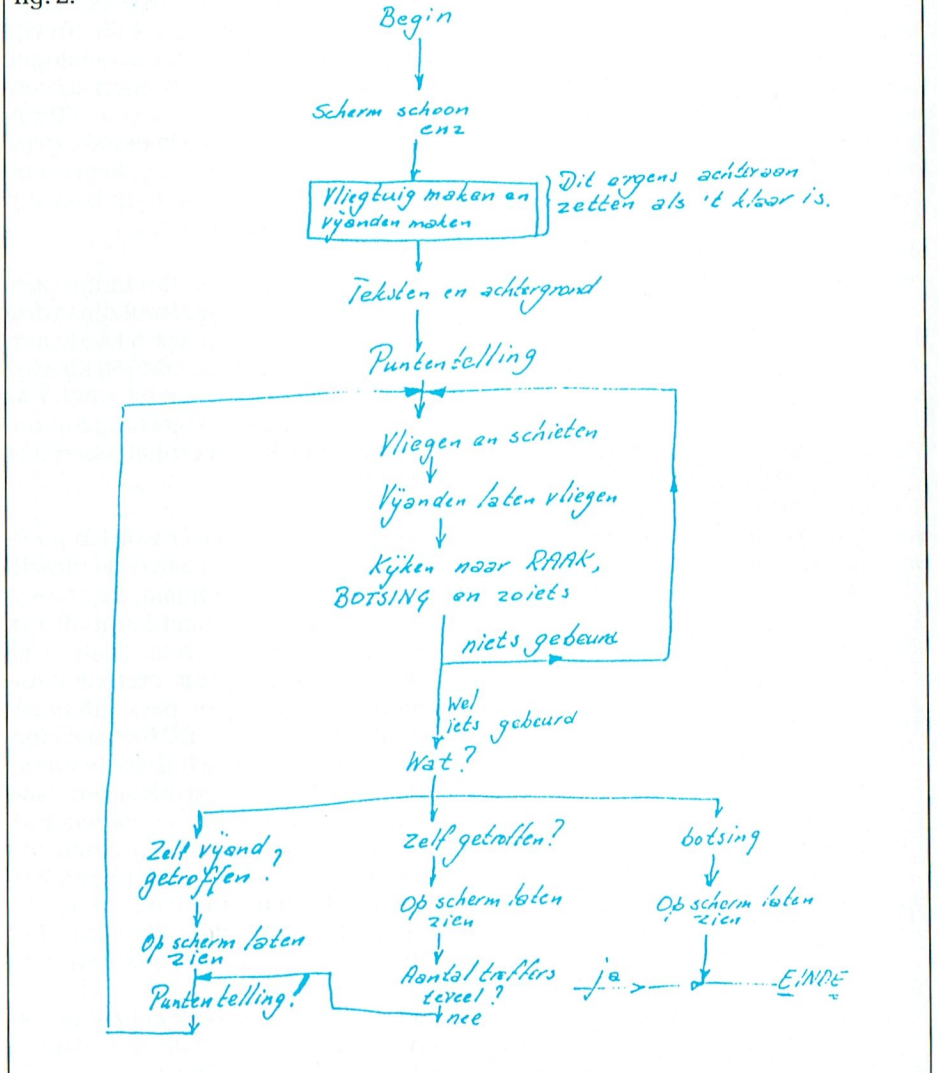 fig. 2.
Begin
Scherm schoon
enz
Vliegtuig maken en
vijanden maken
Dit ergens achteraan
zetten als 't klaar is.
Teksten en achtergrond
Puntentelling
Vliegen en schieten
Vijanden laten vliegen
Kijken naar RAAK,
BOTSING en zoiets
niets gebeurd
Wel
iets gebeurd
Wat?
Zelf vijand
getroffen?
Op scherm laten
zien
Puntentelling!
Zelf getroffen?
Op scherm laten
zien
Aantal treffers
teveel?
nee
ja
botsing
Op scherm laten
zien
EINDE